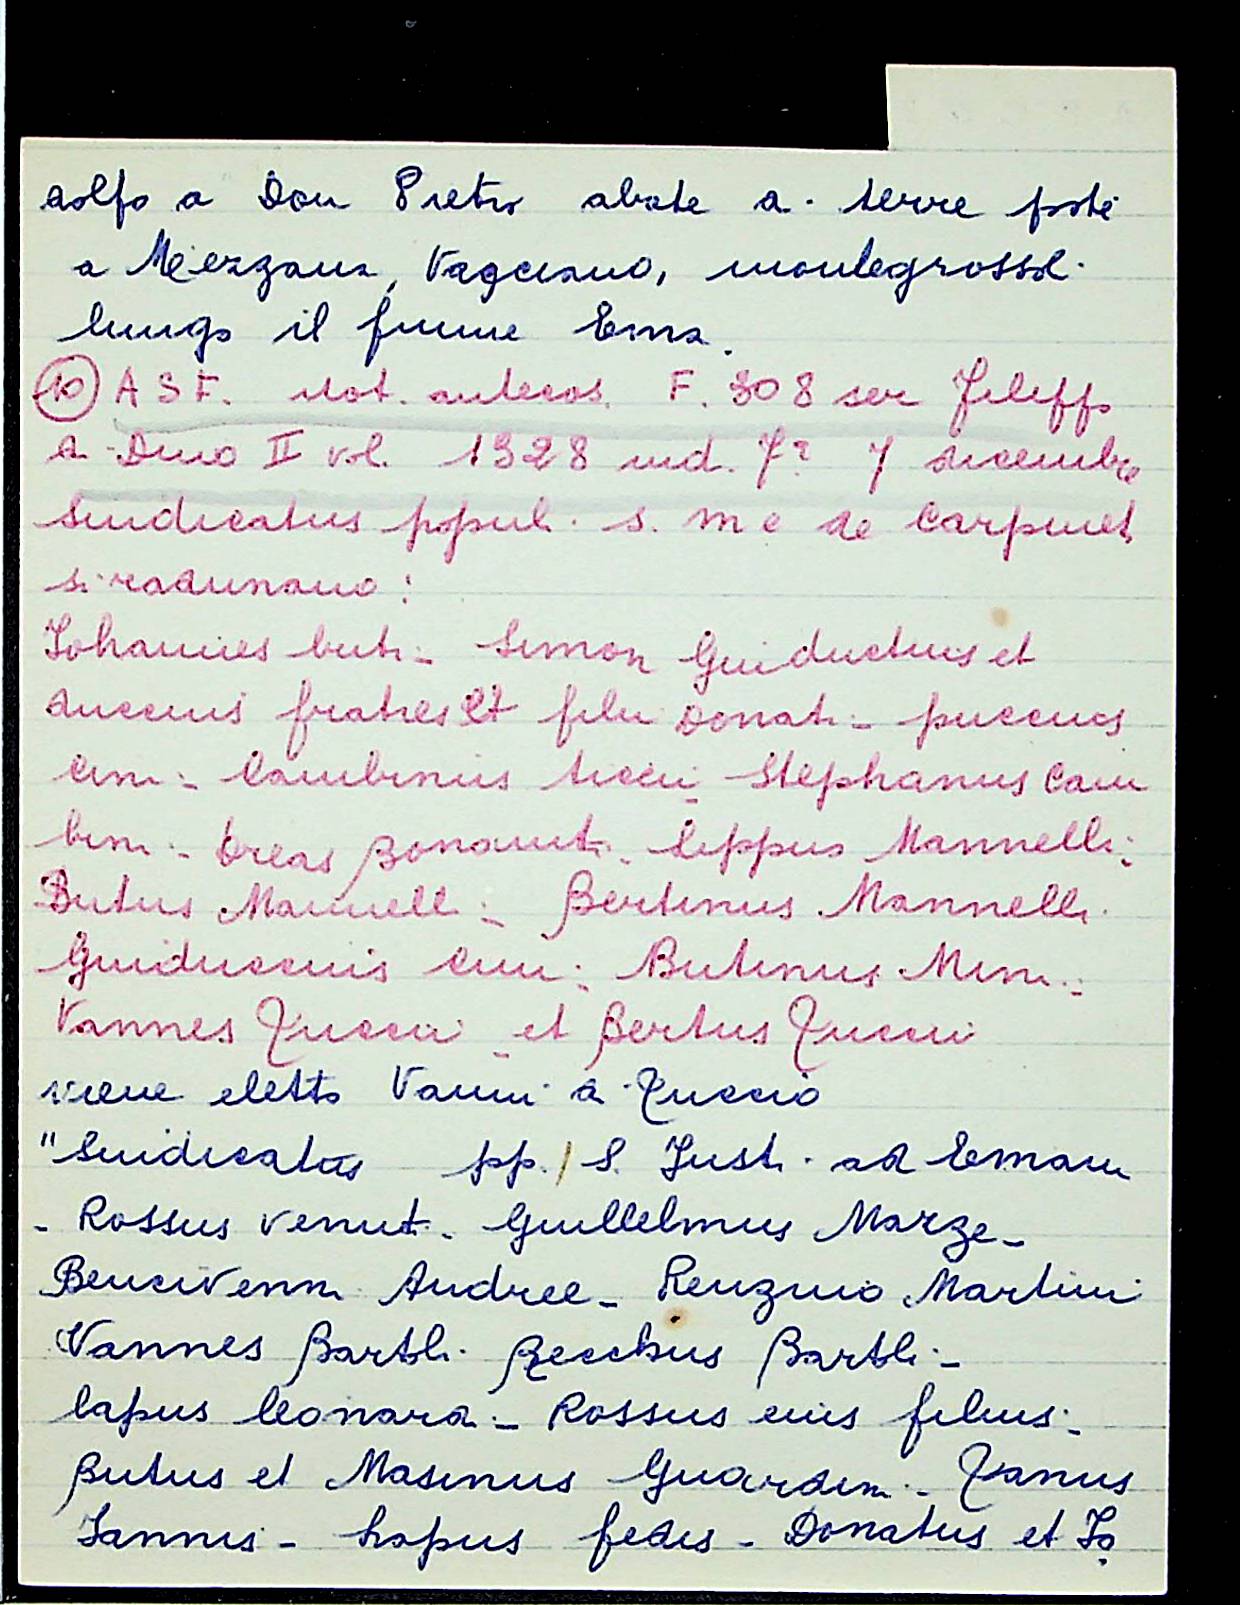 dolfo a Don Pietro abate di terre poste
a Mezzana, Vagciano, montegrossol.
lungo il fiume Ema.
10 A S F. not. antecos. F. 308 ser Filippo
di Dino II vol. 1328 ind. 7a 7 dicembre
Sindicatus popul. s. m e de Carpinet.
si radunano:
Johannes buti - Simon Guiductius et
Duccius fratres et filii Donati - puccius
Cini - Cambinus ticci - Stephanus Cam
bini - Creas Bonaiuti - Lippus Mannelli -
Butus Mannelli - Bertinus Mannelli.
Guiduccius Cini - Butinus Mini -
Vannes Zuccii et Bertus Zuccii
viene eletto Vanni di Zuccio
"Sindicatus pp. / S. Justi ad Emam
- Rossus venuti - Guillelmus Marze -
Bencivenni Andree - Renzino Martini
Vannes Bartoli. Becchus Bartoli -
lapus leonardi - Rossus eius filius -
Butus et Masinus Guardini - Zanus
Iannis - lapus fedis - Donatus et Jo